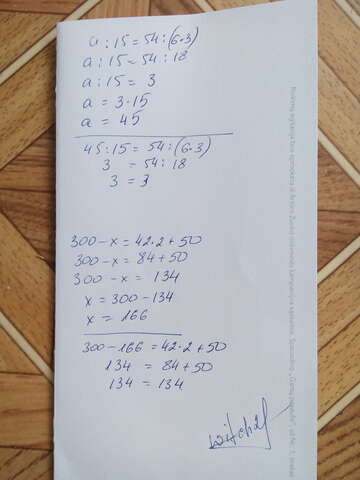 a : 15 = 54 : (6·3)
a : 15 = 54 : 18
a : 15 = 3
a = 3·15
a = 45
45 : 15 = 54 : (6·3)
3 = 54 : 18
3 = 3
300 - x = 42·2 + 50
300 - x = 84 + 50
300 - x = 134
x = 300 - 134
x = 166
300 - 166 = 42·2 + 50
134 = 84 + 50
134 = 134